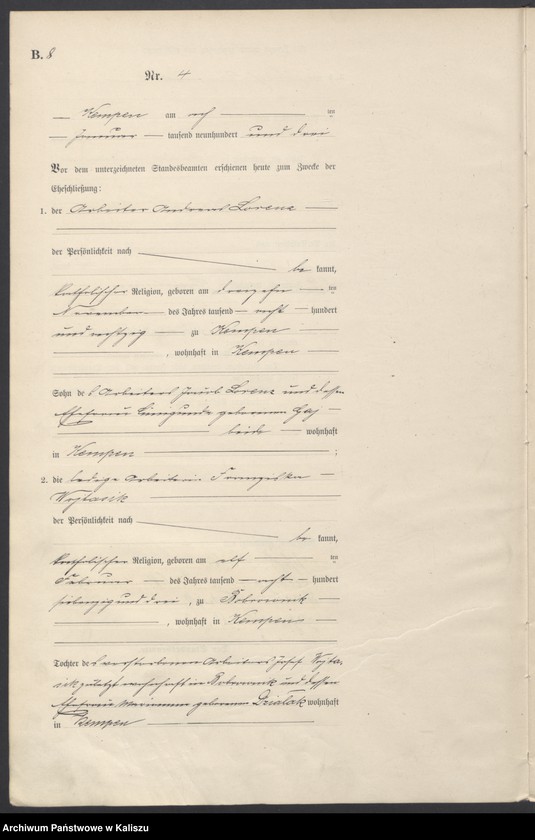 B. 8
Nr. 4
Kempen am
Januar tausend neunhundert und drei
Vor dem unterzeichneten Standesbeamten erschienen heute zum Zwecke der
Eheschließung:
1. der Arbeiter Andreas Lorenz
der Persönlichkeit nach
be kannt,
katholischer Religion, geboren am dreizehn ten
November des Jahres tausend acht hundert
und zu Kempen
, wohnhaft in Kempen
Sohn des Arbeiters Jacob Lorenz und dessen
Ehefrau Kunigunde geborenen
beide wohnhaft
in Kempen ;
2. die ledige Arbeiterin Franziska
Wojtasik
der Persönlichkeit nach
be kannt,
katholischer Religion, geboren am elf ten
Februar des Jahres tausend acht hundert
siebenzig und drei, zu Bobrownik
, wohnhaft in Kempen
Tochter des verstorbenen Arbeiters Josef Wojta-
sik zuletzt wohnhaft in Bobrownik und dessen
Ehefrau Marianna geborenen Dzialak wohnhaft
in Kempen
Archiwum Państwowe w Kaliszu